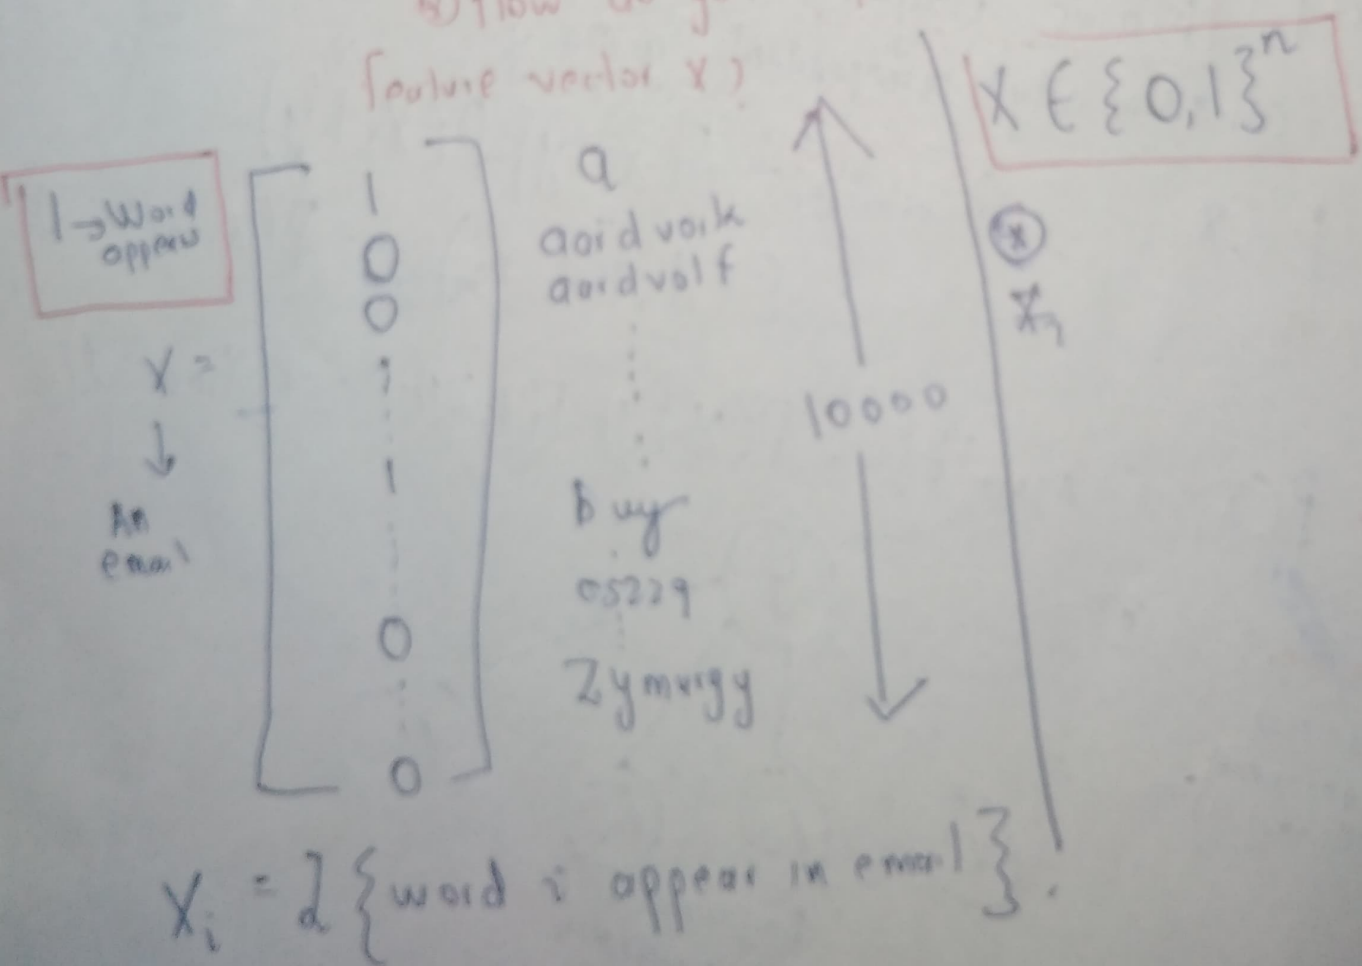 feature vector x)
x ∈ {0,1}^n
1 → Word
appears
x =
↓
An
email
1
0
0
1
0
0
a
aardvark
aardvolf
buy
cs229
Zymurgy
10000
x_i = 1{word i appear in email}.